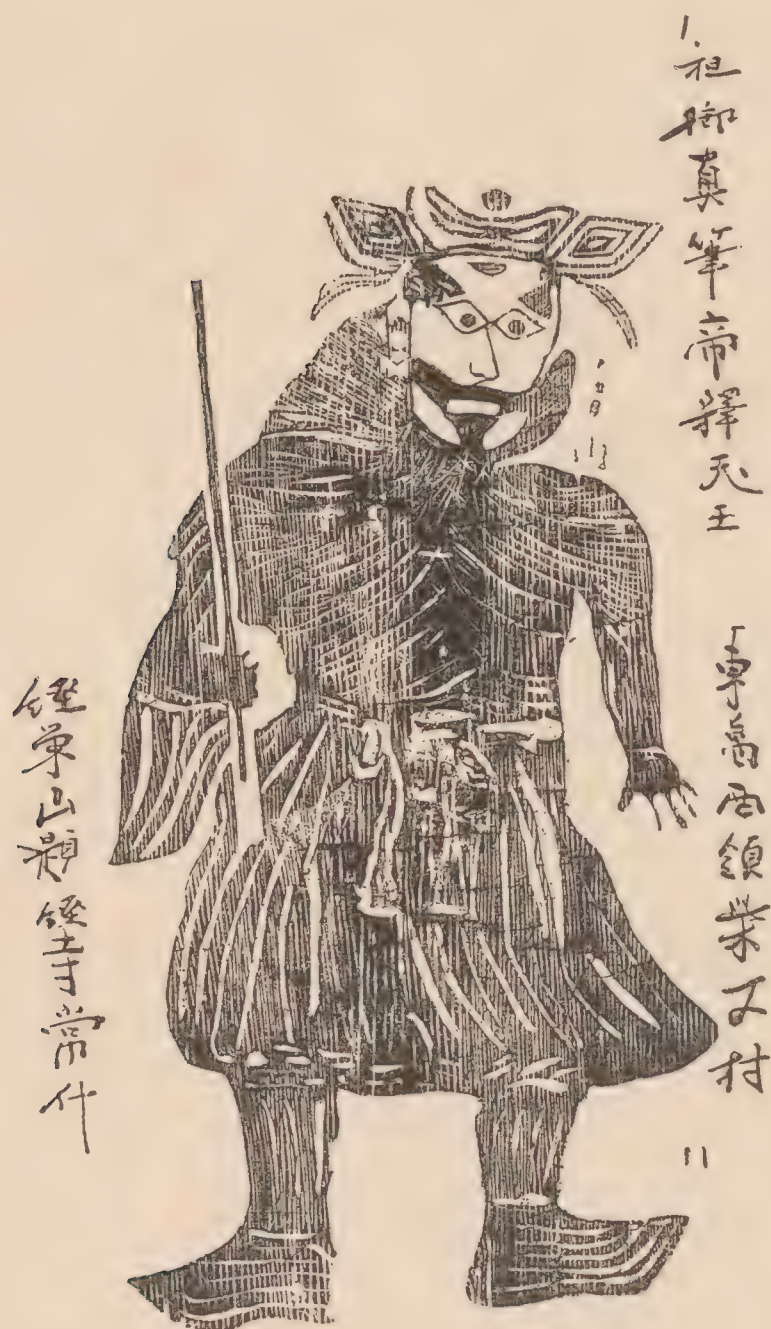 1. 祖師真筆帝釋天王
東葛西領柴又村
経栄山題経寺常什